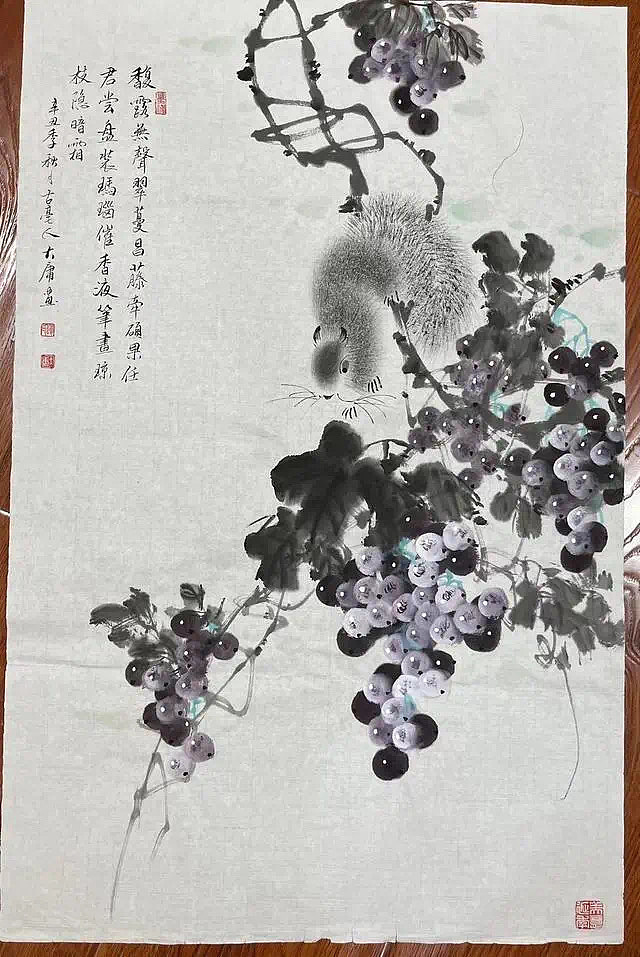 馥露無聲翠蔓昌藤牽碩果任
君尝盘装瑪瑙催香液筆畫琼
枝隐暗霜
辛丑季秋月古亳人大庸畫